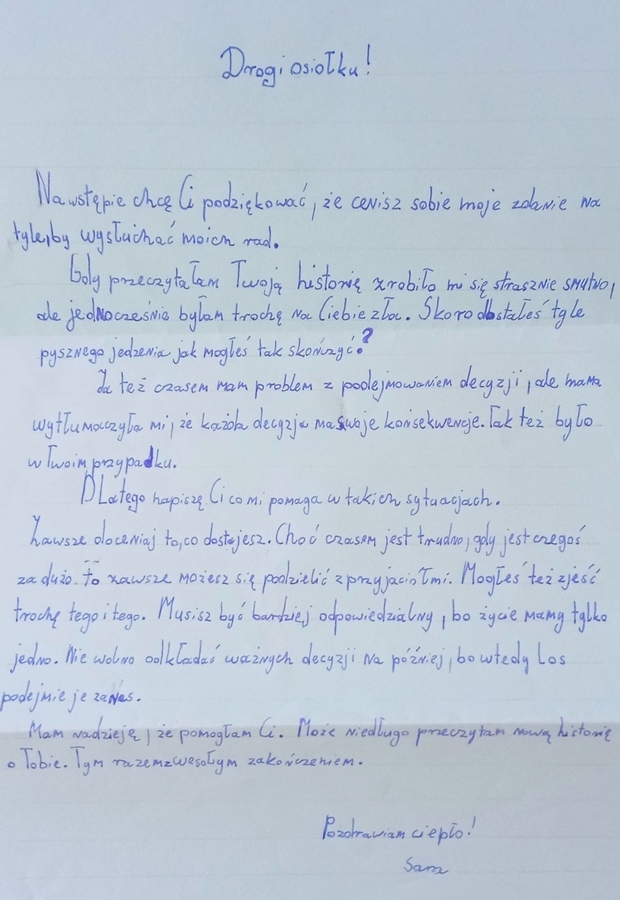 Drogi osiołku!
Na wstępie chcę Ci podziękować, że cenisz sobie moje zdanie na
tyle, by wysłuchać moich rad.
Gdy przeczytałam Twoją historię zrobiło mi się strasznie smutno,
ale jednocześnie byłam trochę na Ciebie zła. Skoro dostałeś tyle
pysznego jedzenia jak mogłeś tak skończyć?
Ja też czasem mam problem z podejmowaniem decyzji, ale mama
wytłumaczyła mi, że każda decyzja ma swoje końsekwencje. Tak też było
w Twoim przypadku.
Dlatego napiszę Ci co mi pomaga w takich sytuacjach.
Zawsze doceniaj to, co dostajesz. Choć czasem jest trudno, gdy jest czegoś
za dużo. to zawsze możesz się podzielić z przyjaciółmi. Mogłeś też zjeść
trochę tego i tego. Musisz być bardziej odpowiedzialny, bo życie mamy tylko
jedno. Nie wolno odkładać ważnych decyzji na później, bo wtedy los
podejmie je za nas.
Mam nadzieję, że pomogłam Ci. Może niedługo przeczytam nową historię
o Tobie. Tym razem z wesołym zakończeniem.
Pozdrawiam ciepło!
Sara